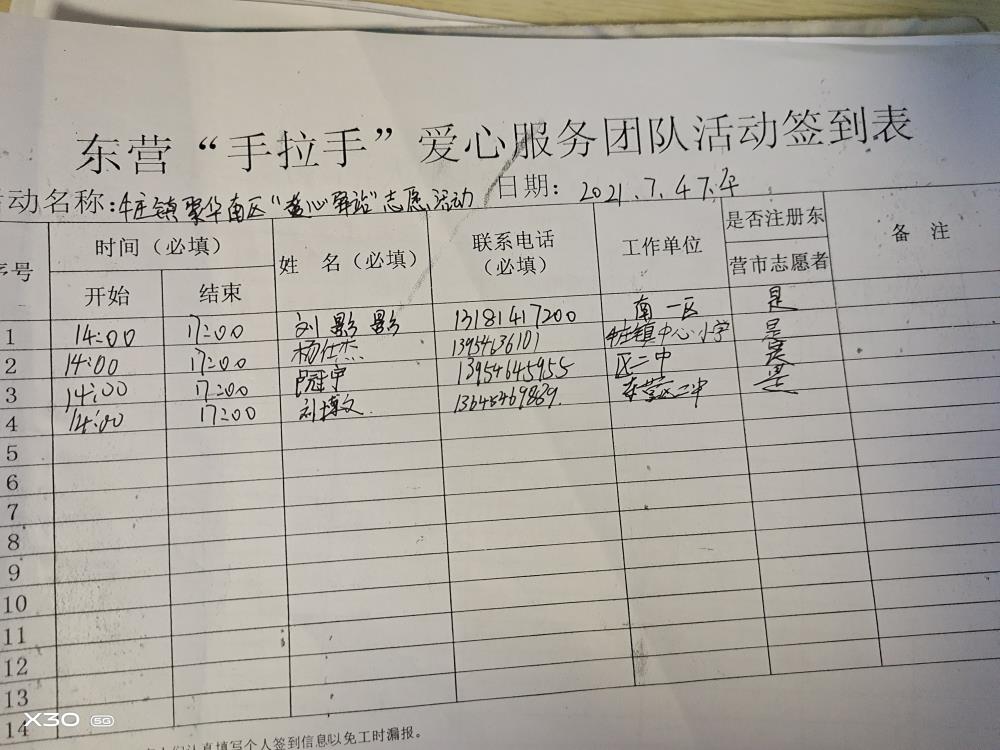 东营“手拉手”爱心服务团队活动签到表
动名称:牛庄镇聚华南区“爱心驿站”志愿活动 日期: 2021.7.4下午
序号 时间（必填） 姓 名（必填） 联系电话（必填） 工作单位 是否注册东营市志愿者 备 注
开始 结束
1 14:00 17:00 刘影影 13181417200 南一区 是
2 14:00 17:00 杨仕杰 13954636101 牛庄镇中心小学 是
3 14:00 17:00 冠宇 13954645955 区二中 是
4 14:00 17:00 刘博文 13645469869. 东营区二中 是
5
6
7
8
9
10
11
12
13
14
认真填写个人签到信息以免工时漏报。
X30 5G